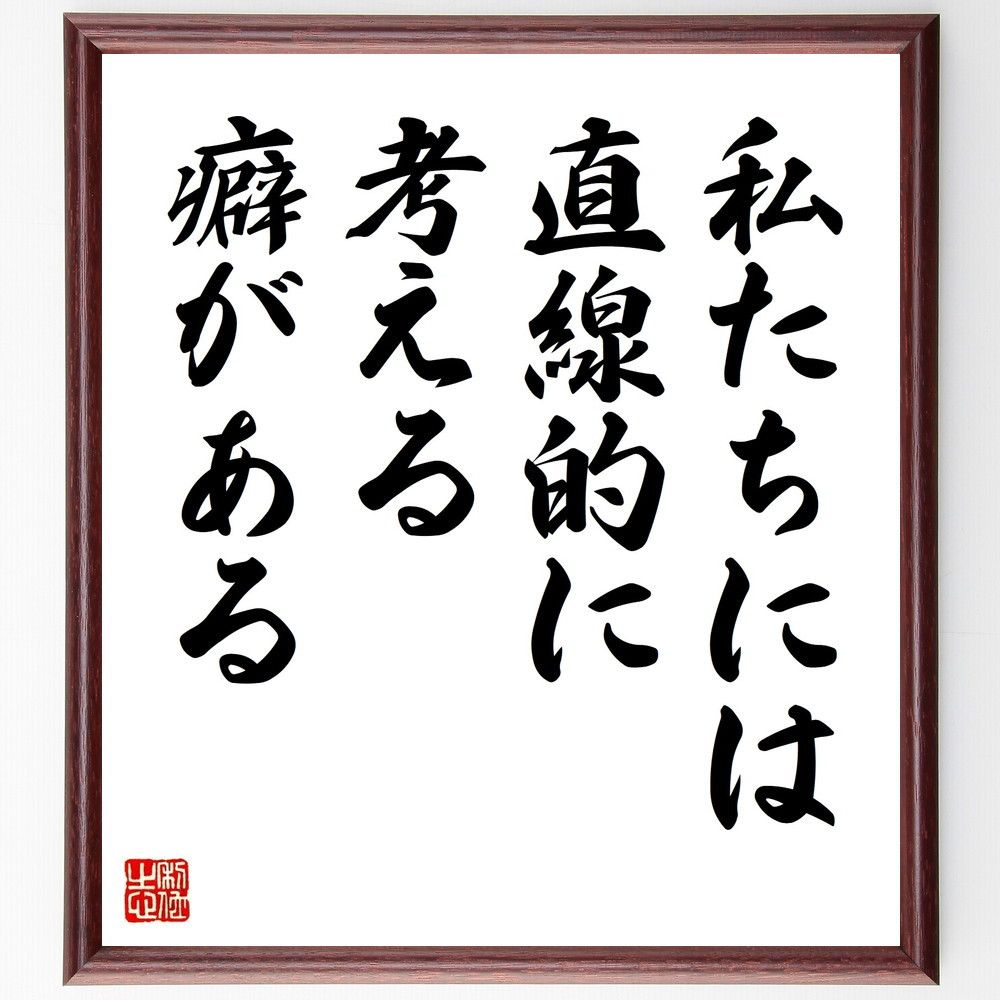 私たちには
直線的に
考える
癖がある